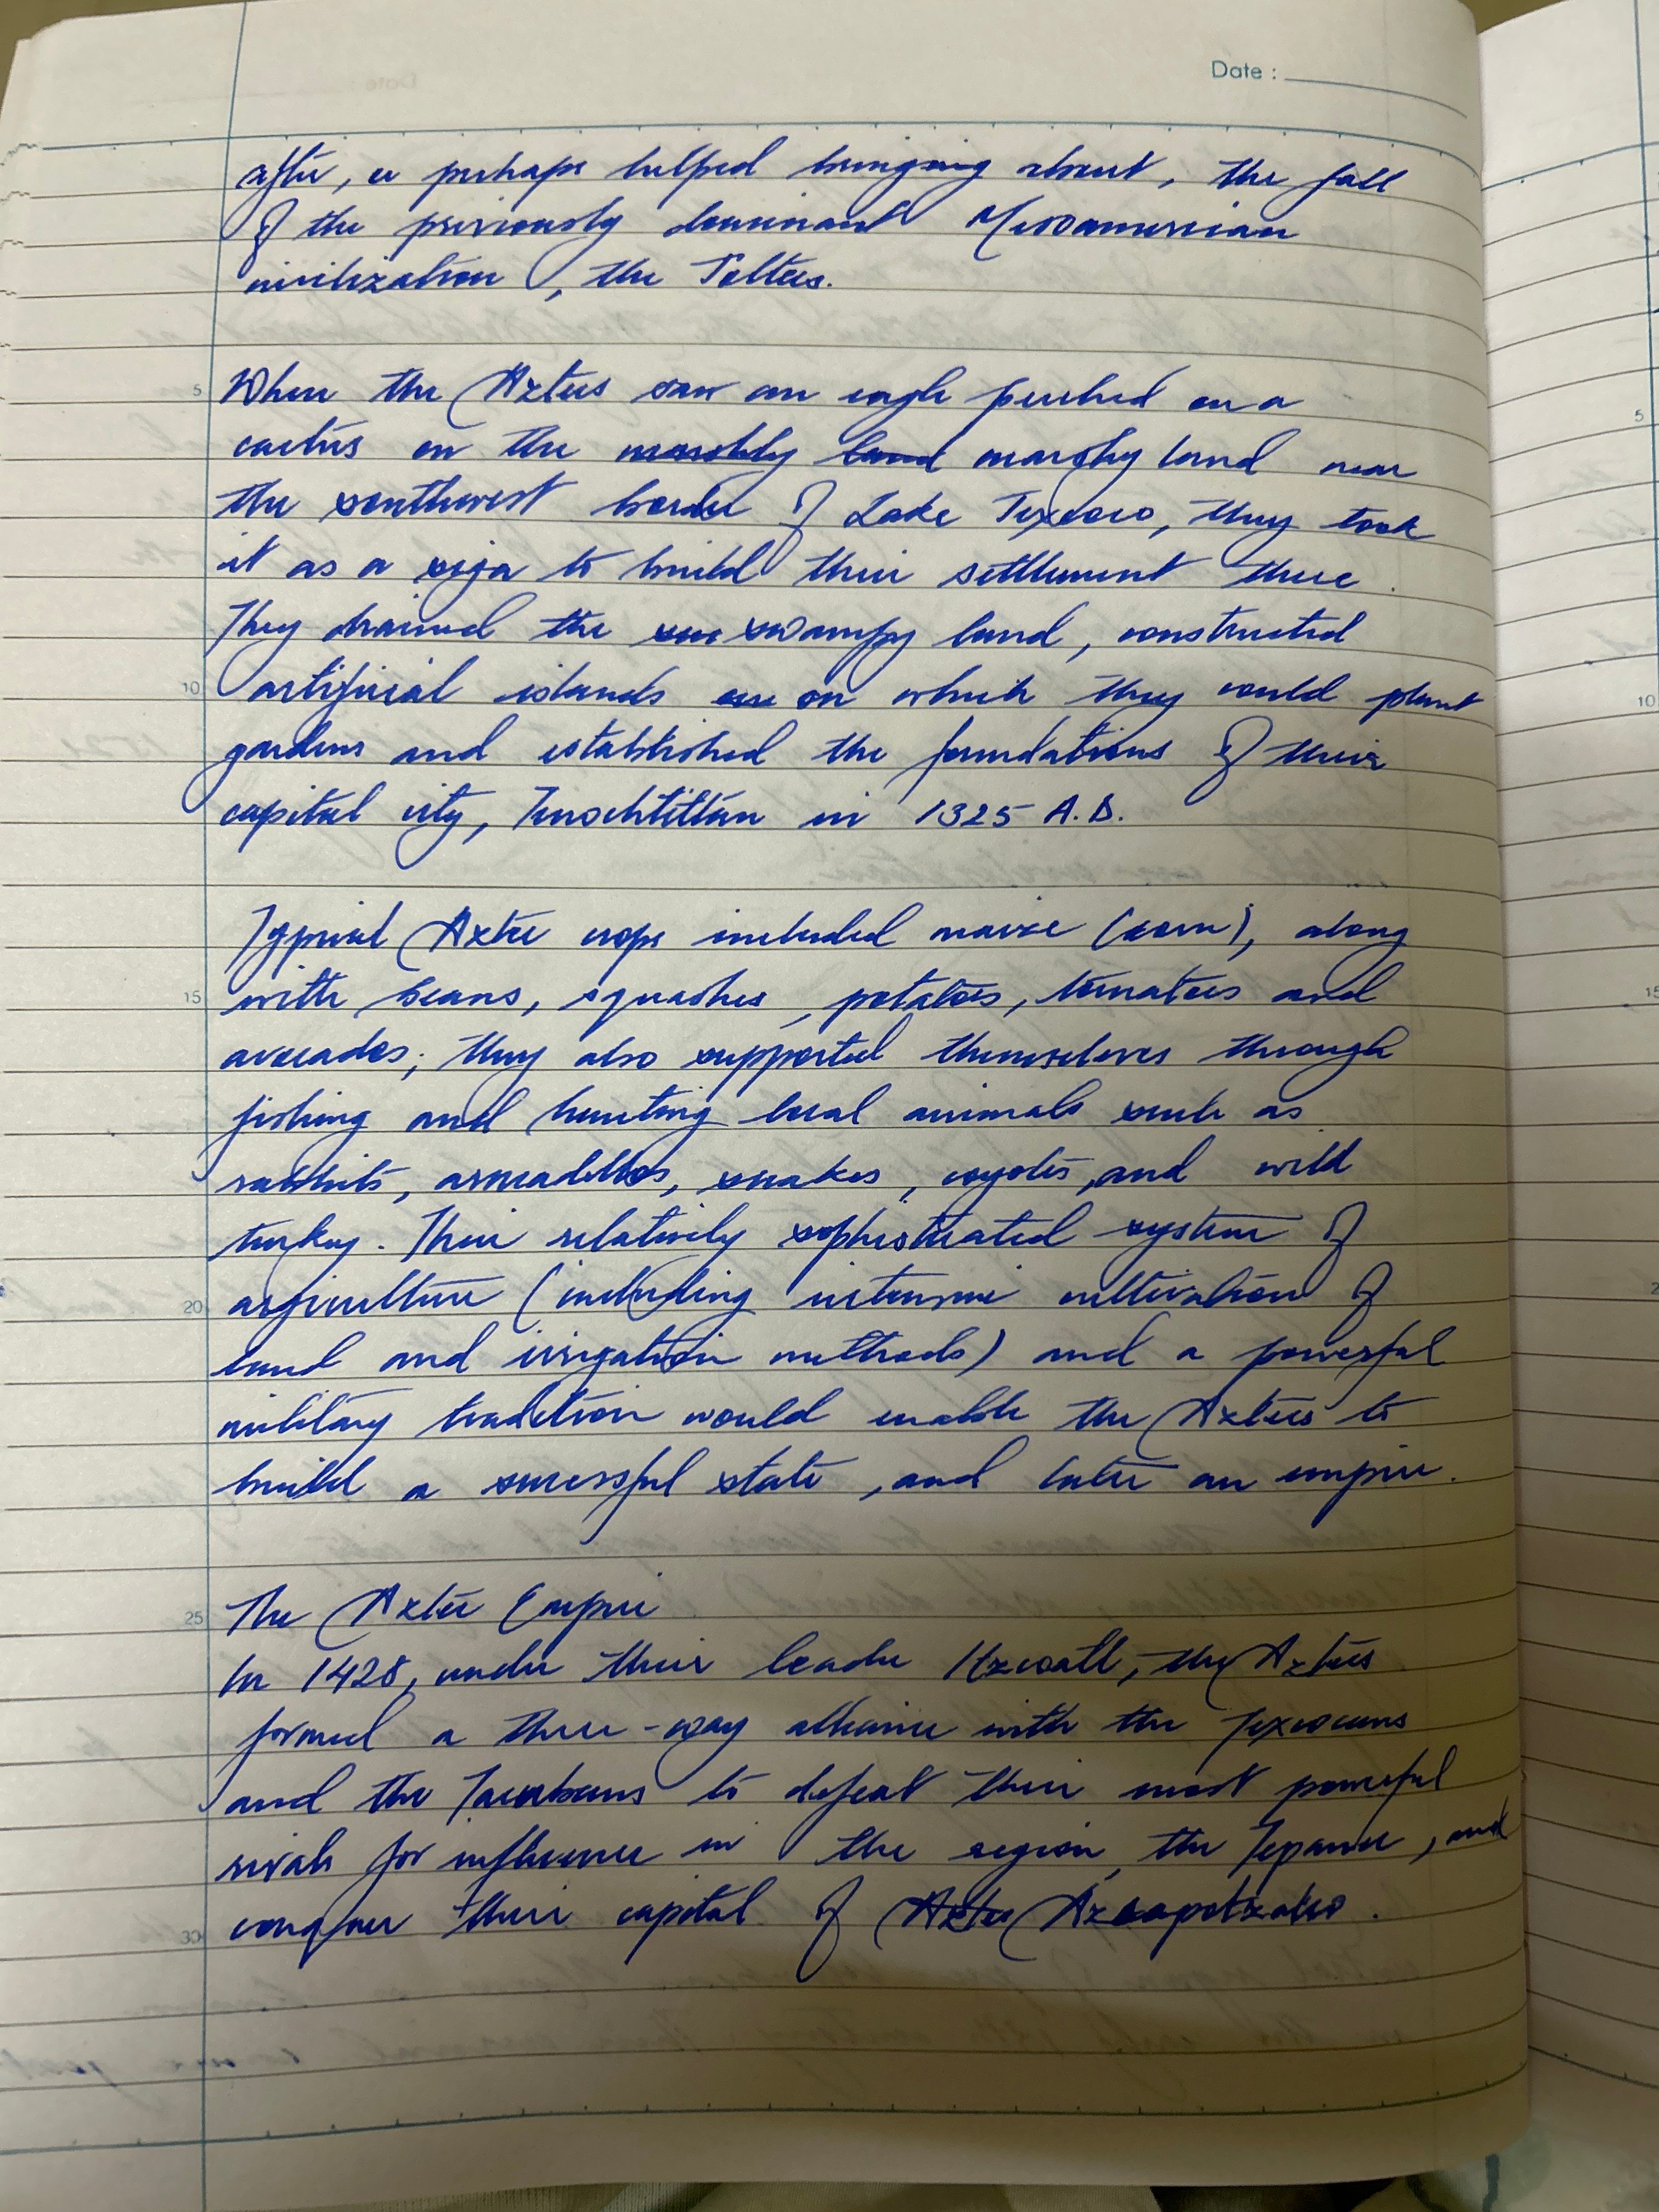 Date :
after, or perhaps helped bringing about, the fall
of the previously dominant Mesoamerican
civilization, the Toltecs.
When the Aztecs saw an eagle perched on a
cactus on the marshy land near
the southwest border of Lake Texcoco, they took
it as a sign to build their settlement there.
They drained the swampy land, constructed
artificial islands on which they could plant
gardens and established the foundations of their
capital city, Tenochtitlán in 1325 A.D.
Typical Aztec crops included maize (corn), along
with beans, squashes, potatoes, tomatoes and
avocados; they also supported themselves through
fishing and hunting local animals such as
rabbits, armadillos, snakes, coyotes, and wild
turkey. Their relatively sophisticated system of
agriculture (including intensive cultivation of
land and irrigation methods) and a powerful
military tradition would enable the Aztecs to
build a successful state, and later an empire.
The Aztec Empire
In 1428, under their leader Itzcoatl, the Aztecs
formed a three-way alliance with the Texcocans
and the Tacubans to defeat their most powerful
rivals for influence in the region, the Tepanec, and
conquer their capital of Azcapotzalco.
5
10
15
20
25
30